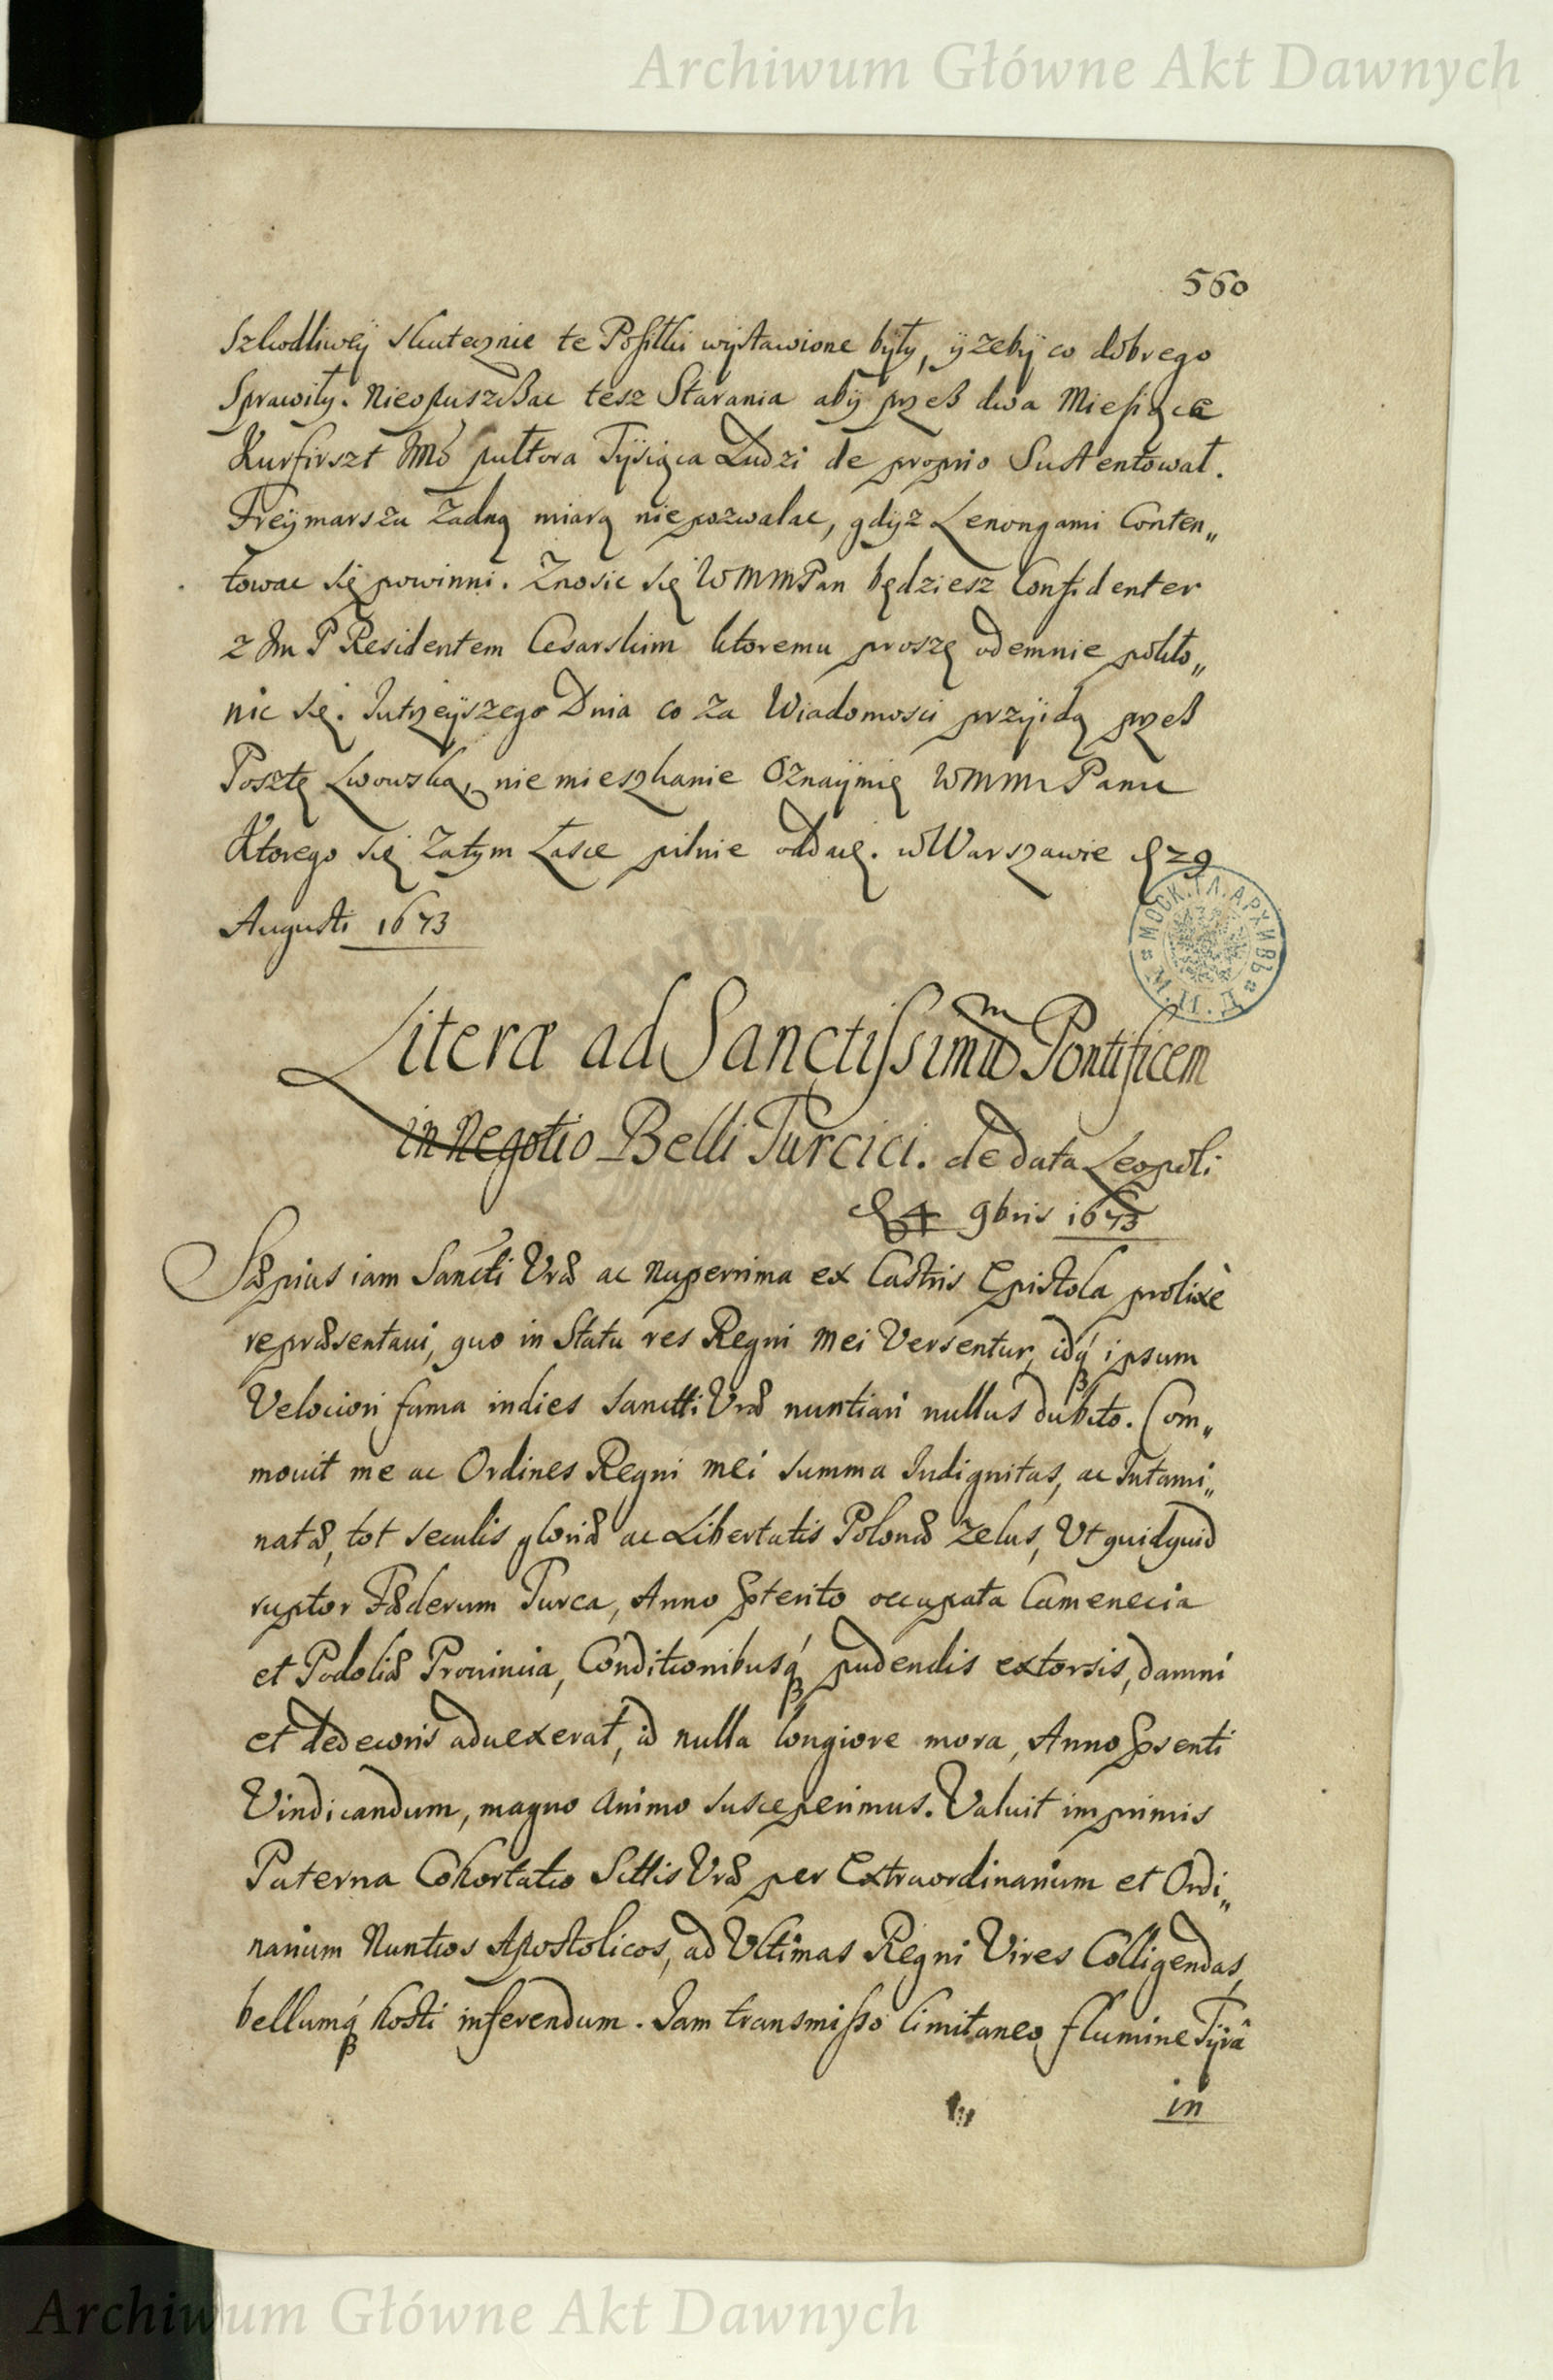 Archiwum Główne Akt Dawnych
560
Szkodliwey skutecznie te Posiłki wystawione były, y zeby co dobrego
Sprawiły. Nieopuszczac tesz Starania aby przeß dwa Miesiące
Kurfirszt Jmć pułtora Tysiąca Ludzi de proprio Sustentował.
Freymarszu Zadną miarą niepozwalac, gdyz Lenongami Conten„
towac się powinni. Znosic się WMMPan będziesz Confidenter
z Jm P Residentem Cesarskim ktoremu proszę odemnie pokło„
nic się. Jutrzeyszego Dnia co za Wiadomosci przyidą przeß
Posztę Lwowską, niemieszkanie Oznaymię WMMPanu
Ktorego się Zatym Łasce pilnie oddaię. w Warszawie d 29
Augusti 1673
МОСК. ГЛ. АРХИВЪ
Literæ ad Sanctissimū Pontificem
in Negotio Belli Turcici. de data Leopoli
d 4 9bris 1673
Sæpius iam Sanctti Vræ ac nuperrima ex Castris Epistola prolixè
repræsentaui, quo in Statu res Regni mei Versentur, idq́ ipsum
Velociori fama indies sanctti Vræ nuntiari nullus dubito. Com„
mouit me ac Ordines Regni mei summa Indignitas, ac Intami„
natæ, tot seculis gloriæ ac Libertatis Polonæ zelus, Ut quidquid
ruptor Fæderum Turca, Anno pterito occupata Camenecia
et Podoliæ Prouincia, Conditionibusq́ pudendis extorsis, damni
et dedecoris aduexerat, id nulla longiore mora, Anno psenti
Vindicandum, magno animo susceperimus. Valuit imprimis
Paterna Cohortatio Scttis Vræ per Extraordinarium et Ordi„
narium Nuntios Apostolicos, ad Ultimas Regni Vires Colligendas,
bellumq́ hosti inferendum. Iam transmisso limitaneo flumine Tyrâ
in
Archiwum Główne Akt Dawnych